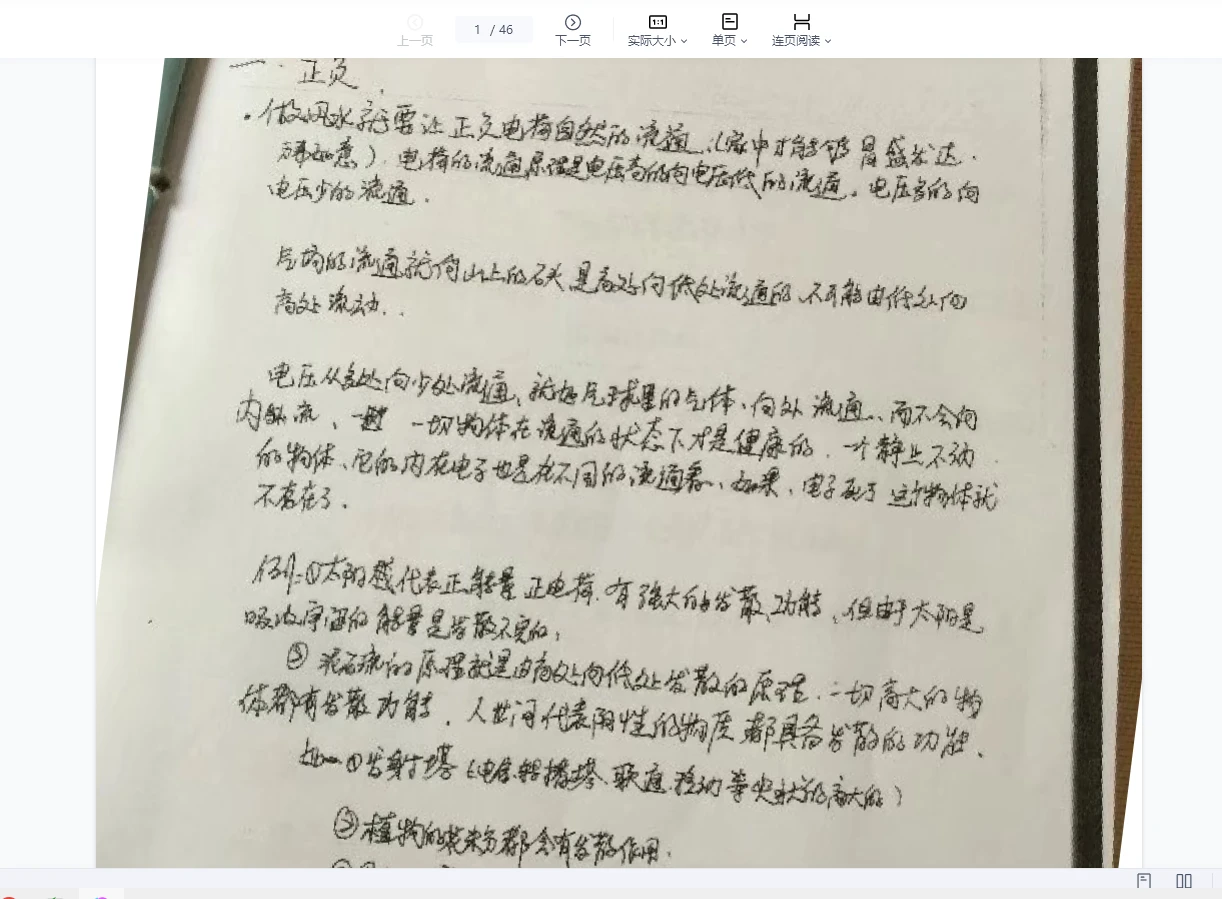 上一页
1 / 46
下一页
实际大小
单页
连页阅读
一. 正负.
·做风水就要让正负电荷自然的流通.(家中才能够昌盛发达.
万事如意). 电荷的流通原理是电压高的向电压低的流通。电压多的向
电压少的流通.
气场的流通就像山上的石头是高处向低处流通的、不可能由低处向
高处流动..
电压从多处向少处流通、就好气球里的气体、向外流通、而不会向
内部流、一切物体在流通的状态下才是健康的. 一个静止不动
的物体、它的内在电子也是在不同的流通着、如果、电子死了这个物体就
不存在了.
例:①太阳代表正能量 正电荷.有强大的发散功能、但由于太阳是
吸收宇宙的能量是发散不完的,
② 泥石流的原理就是由高处向低处发散的原理. 一切高大的物
体都有发散功能. 人世间代表阳性的物质都具备发散的功能、
如 ①发射塔(电信.转播塔. 等尖状的高大的)
②植物的 都会有发散作用.